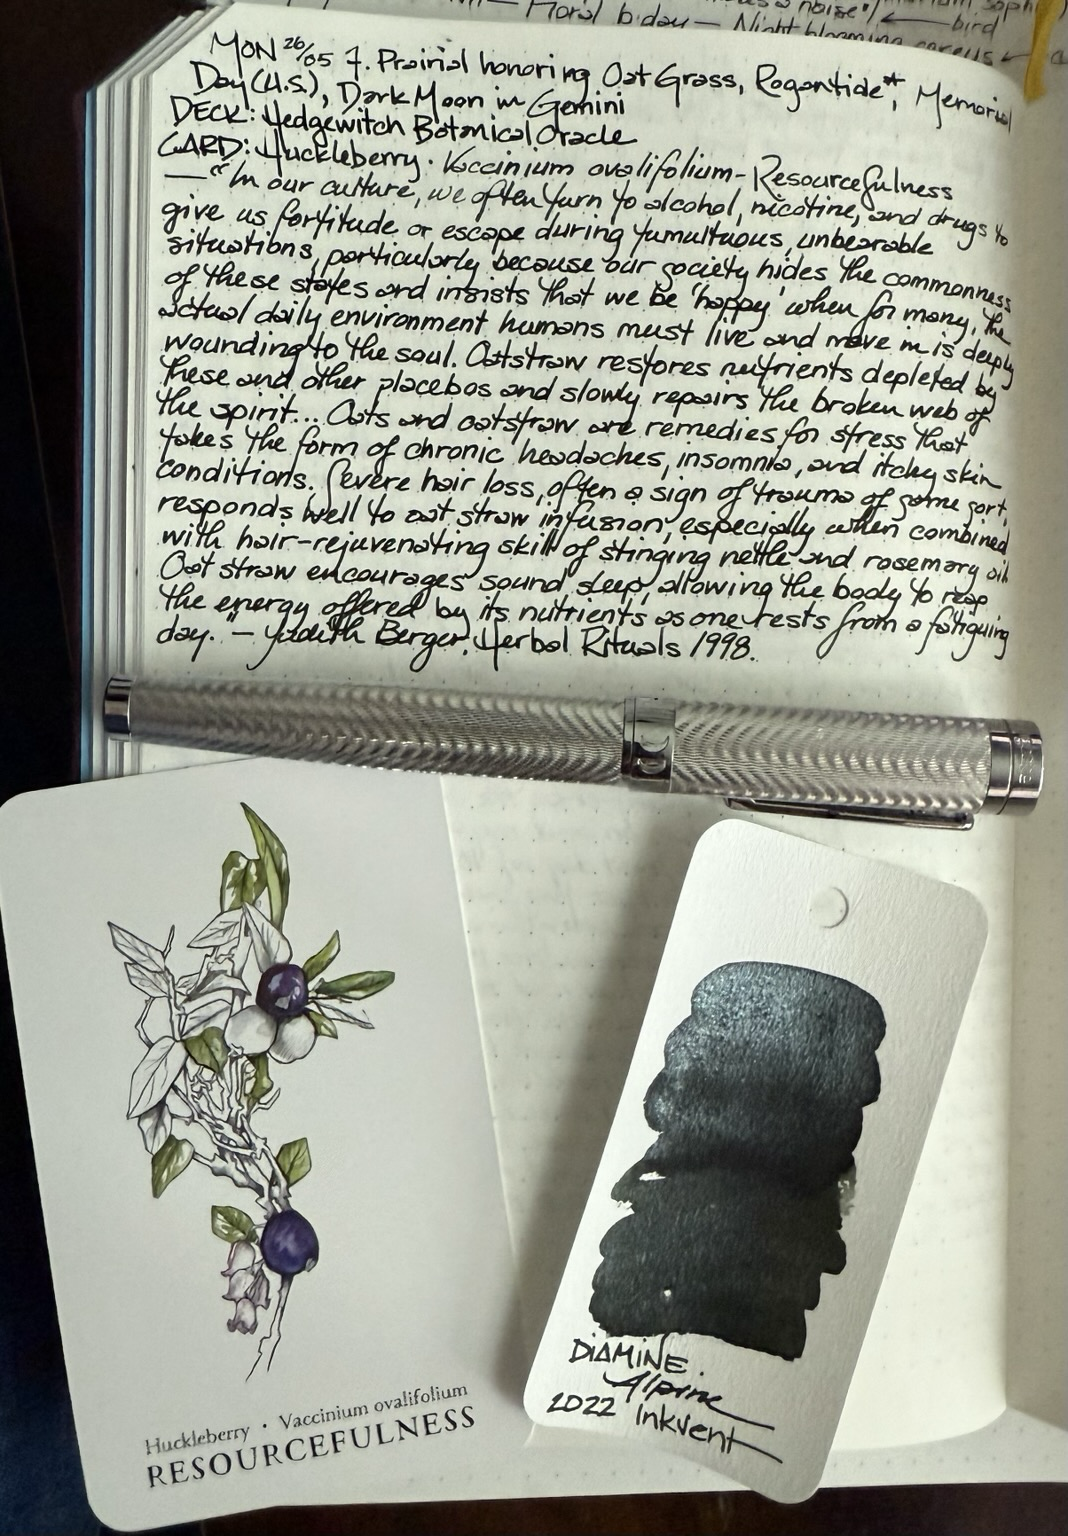 noise"/ ← bird
Floral b.day — Night blooming cereus ←
MON 26/05 7. Prairial honoring Oat Grass, Rogantide*, Memorial
Day (U.S.), Dark Moon in Gemini
DECK: Hedgewitch Botanical Oracle
CARD: Huckleberry · Vaccinium ovalifolium - Resourcefulness
— "In our culture, we often turn to alcohol, nicotine, and drugs to
give us fortitude or escape during tumultuous, unbearable
situations, particularly because our society hides the commonness
of these states and insists that we be 'happy' when for many, the
actual daily environment humans must live and move in is deeply
wounding to the soul. Oatstraw restores nutrients depleted by
these and other placebos and slowly repairs the broken web of
the spirit... Oats and oatstraw are remedies for stress that
takes the form of chronic headaches, insomnia, and itchy skin
conditions. Severe hair loss, often a sign of trauma of some sort,
responds well to oat straw infusion, especially when combined
with hair-rejuvenating skill of stinging nettle and rosemary oil.
Oat straw encourages sound sleep, allowing the body to reap
the energy offered by its nutrients as one rests from a fatiguing
day." — Judith Berger, Herbal Rituals 1998.
Huckleberry · Vaccinium ovalifolium
RESOURCEFULNESS
DIAMINE
Alpine
2022 Inkvent